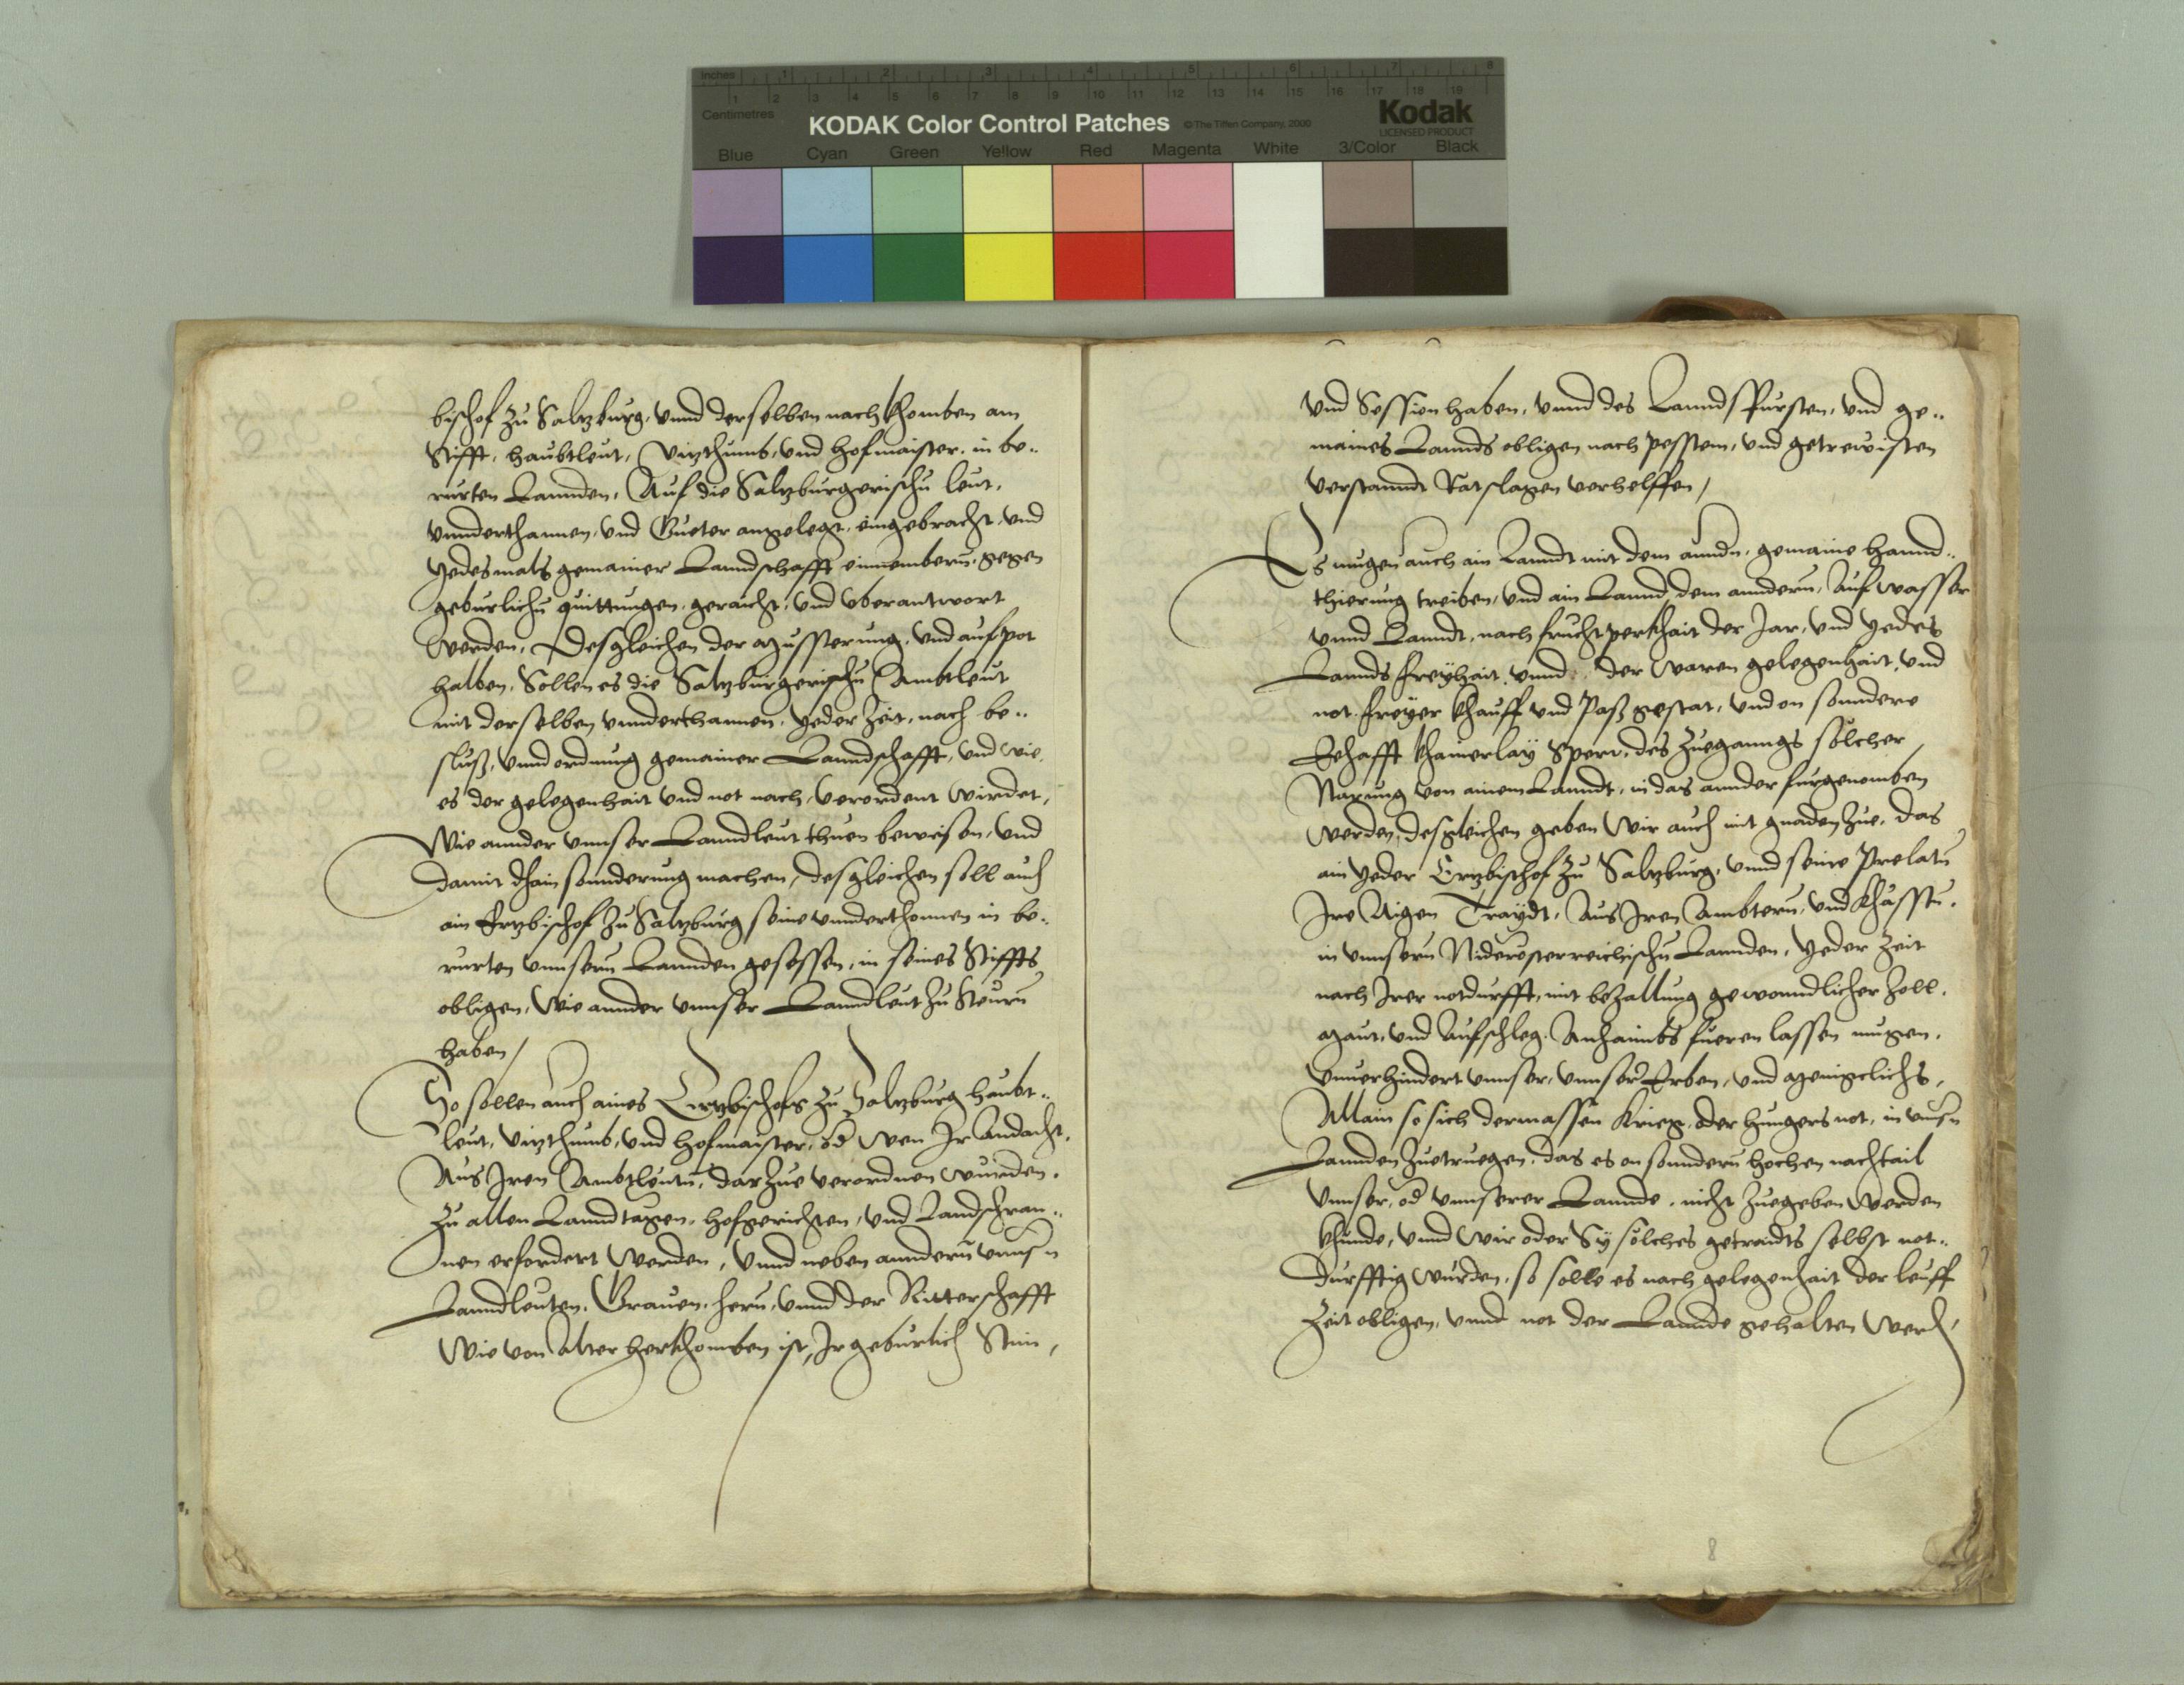 inches 1 2 3 4 5 6 7 8
Centimetres 1 2 3 4 5 6 7 8 9 10 11 12 13 14 15 16 17 18 19
KODAK Color Control Patches © The Tiffen Company, 2000
Kodak
LICENSED PRODUCT
Blue Cyan Green Yellow Red Magenta White 3/Color Black
bischof zu Saltzburg, vnnd derselben nachkhomben am
Stifft, haubtleut, Vitzthumb, vnd Hofmaister, in be..
rurten Lannden, Auf die Saltzburgerischn leut,
vnnderthannen, vnd Gueter angelegt, eingebracht, vnd
Yedesmals gemainer Lanndschafft einnembern, gegen
geburlichn quittungen, geraicht, vnd vberantwort
werden, Desgleichen der Musterung, vnd aufpot
halben, Sollen es die Saltzburgerischn Ambtleut
mit derselben vnnderthannen, yeder Zeit, nach be..
sluss, vnnd ordnung gemainer Lanndschafft, vnd wie
es der gelegenhait vnd not nach, verordent wirdet,
Wie annder vnnser Lanndleut thuen beweisen, vnd
damit khain sonnderung machen, desgleichen soll auch
ain Ertzbischof zu Saltzburg seine vnnderthonnen in be..
rurten vnnsern Lannden gesessen, in seines Stiffts
obligen, Wie annder vnnser Lanndleut zu Steurn
haben/
So sollen auch aines Ertzbischofs zu Saltzburg haubt..
leut, Vitzthumb, vnd Hofmaister, od wen Ir Andacht,
Aus Iren Ambtleutn, darzue verordnen wurden,
zu allen Lanndtagen, Hofgerichten, vnd Landschran..
nen erfordert werden, vnnd neben anndern vnnsn
Lanndleuten, Grauen, hern, vnnd der Ritterschafft
Wie von alter herkhomben ist, Ir geburlich Stim,
vnd Session haben, vnnd des Lanndsfursten, vnd ge..
maines Lannds obligen nach pesstem, vnd getrewisten
verstanndt Ratslagen verhelffen/
Es mugen auch ain Lanndt mit dem anndn, gemaine hannd..
thierung treiben, vnd ain Lannd dem anndern, Auf wasser
vnnd Lanndt, nach fruchtperkhait der Jar, vnd yedes
Lannds freyhait, vnnd der waren gelegenhait, vnd
not freyer khauff vnd Pass gestat, vnd on sonndere
Eehafft khainerlay Sperr, des zueganngs solcher
Narung von ainem Lanndt, in das annder furgenomben
werden, desgleichen geben Wir auch mit gnaden zue, das
ain yeder Ertzbischof zu Saltzburg, vnnd seine Prelatn
Ire Aigen Traydt, Aus Iren Ambtern, vnd Khasstn,
in vnnsern Niderösterreichischn Lannden, Yeder Zeit
nach Irer notdurfft, mit bezallung gewonndlicher Zoll,
Maut, vnd Aufschleg, Anhaimbs fueren lassen mugen,
vnuerhindert vnnser, vnnser Erben, vnd Menigclichs,
Allain so sich dermassen Krieg, oder hungersnot, in vnnsn
Lannden zuetruegen, das es on sonndern hochen nachtail
vnnser, od vnnserer Lannde, nicht zuegeben werden
khunde, vnnd wir oder Sy solches getraidts selbst not..
durfftig wurden, so solle es nach gelegenhait der leuff
Zeit obligen, vnnd not der Lannde gehalten werdn,
8